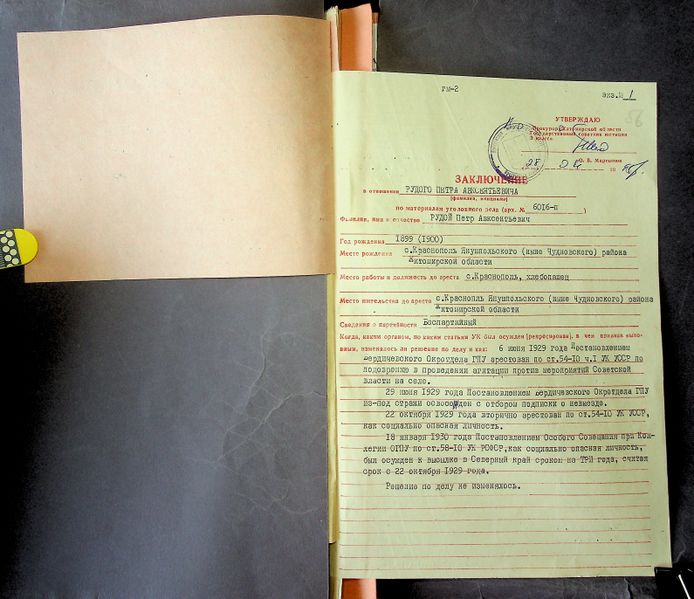 гм-2
экз.№ 1
86
УТВЕРЖДАЮ
Прокурор Житомирской области
Государственный советник юстиции
3 класса
О. В. Мартынюк
28
ЗАКЛЮЧЕНИЕ
в отношении РУДОГО ПЕТРА АВКСЕНТЬЕВИЧА
(фамилия, инициалы)
по материалам уголовного дела (арх. № 6016-п )
Фамилия, имя и отчество РУДОЙ Петр Авксентьевич
Год рождения 1899 (1900)
Место рождения с.Краснополь Янушпольского (ныне Чудновского) района
Житомирской области
Место работы и должность до ареста с.Краснополь, хлебопашец
Место жительства до ареста с.Краснополь Янушпольского (ныне Чудновского) района
Житомирской области
Сведения о партийности Беспартийный
Когда, каким органом, по каким статьям УК был осужден (репрессирован), в чем признан винов-
ным, изменялось ли решение по делу и как: 6 июня 1929 года Постановлением
Бердичевского Окротдела ГПУ арестован по ст.54-10 ч.1 УК УССР по
подозрению в проведении агитации против мероприятий Советской
власти на селе.
29 июня 1929 года Постановлением Бердичевского Окротдела ГПУ
из-под стражи освобожден с отбором подписки о невыезде.
22 октября 1929 года вторично арестован по ст.54-10 УК УССР,
как социально опасная личность.
18 января 1930 года Постановлением Особого Совещания при Кол-
легии ОГПУ по ст.58-10 УК РСФСР,как социально опасная личность,
был осужден к высылке в Северный край сроком на ТРИ года, считая
срок с 22 октября 1929 года.
Решение по делу не изменялось.